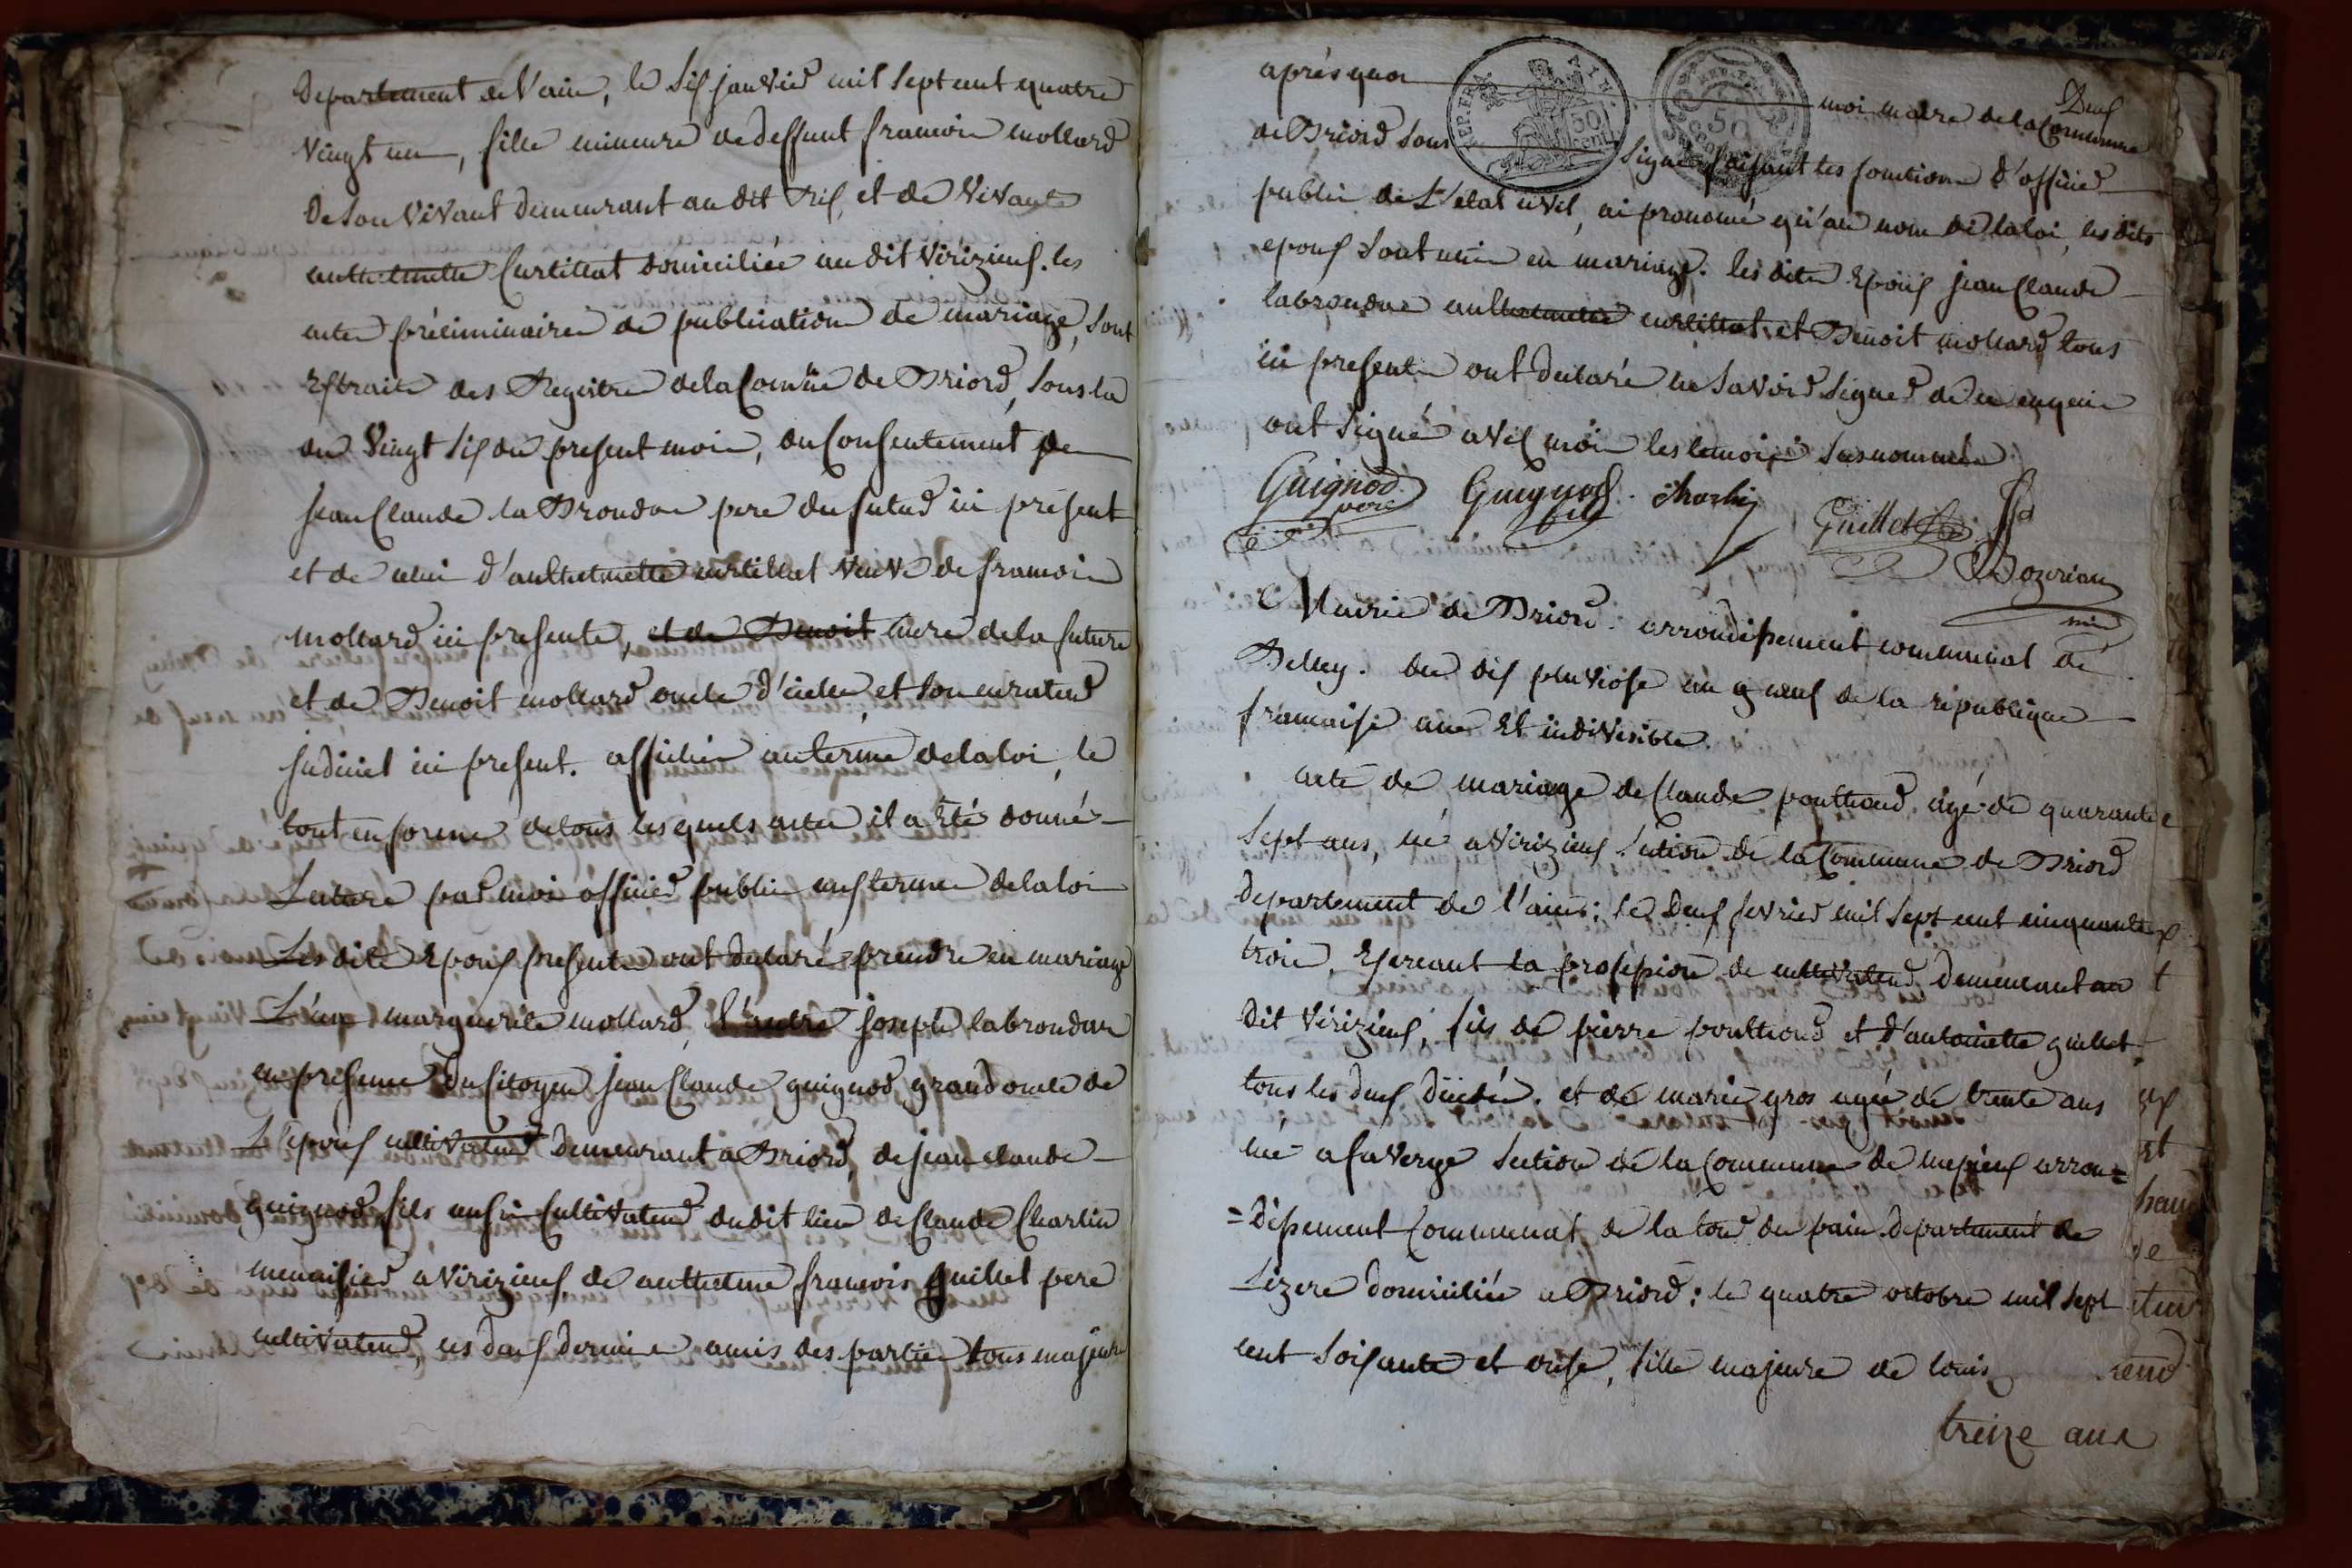 departement de l'ain, le six janvier mil sept cent quatre
vingt un, fille mineure de deffunt francois mollard
de son vivant demeurant au dit Rix, et de vivante
anthelmette Curtillat domiciliée au dit vérizieux. les
actes préliminaires de publication de mariage, sont
extraits des Registre de la Comüe de Briord, sous la
du vingt six du present mois, du Consentement de
jean Claude la Brondue pere du futur ici présent
et de celui d'anthelmette curtillat veuve de francois
mollard ici presente, et de Benoit mere de la future
et de Benoit mollard oncle d'icelle et son curateur
judiciel ici present. affichés au terme de la loi, le
tout en forme de tous les quels actes il a été donné
Lecture par moi officier public aux termes de la loi
Les dits Epoux presents ont declaré prendre en mariage
L'un marguerite mollard, l'autre joseph labrondue
en presence du citoyen jean Claude guignod grand oncle de
L'epoux cultivateur demeurant a Briord, de jean claude
guignod fils aussi Cultivateur du dit lieu de Claude Charlin
menuisier a vérizieux, de anthelme francois guillet pere
cultivateur, ces deux derniers amis des parties tous majeurs
Deux
après quoi moi maire de la Commune
de Briord sous signé faisant les fonctions d'officier
public de L'etat civil, ai prononcé qu'au nom de la loi, les dits
epoux sont unis en mariage. les dits Epoux jean Claude
labrondue anthelmette curtillat, et Benoit mollard tous
ici presents ont declaré ne savoir signer de ce enquis
ont signé avec moi les temoins susnommés
Guignod père Guignod fils Charlin Guillet
Bozerian
mre
Mairie de Briord. arrondissement communal de
Belley. du dix pluviose an 9 neuf de la république
francaise une Et indivisible.
acte de mariage de Claude pouthod agé de quarante
sept ans, né a vérizieux section de la Commune de Briord
departement de l'ain; le deux fevrier mil sept cent cinquante
trois, Exercant la profession de cultivateur demeurant au
dit vérizieux, fils de pierre pouthod et d'antoinette guillet
tous les deux décédés. et de marie gros agée de trente ans
née a faverge section de la Commune de mepieux arron=
=dissement Communal de la tour du pain departement de
Lizere domiciliée a Briord; le quatre octobre mil sept
cent soixante et onze, fille majeure de louis
treize ans